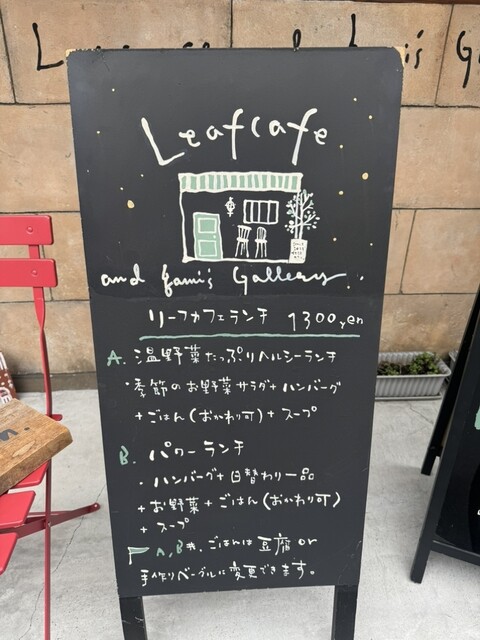 Leafcafe
and fami's Gallery
リーフカフェランチ 1300yen
A. 温野菜たっぷりヘルシーランチ
・季節のお野菜サラダ+ハンバーグ
+ごはん(おかわり可)+スープ
B. パワーランチ
・ハンバーグ+日替わり一品
+お野菜+ごはん(おかわり可)
+スープ
A,B共、ごはんは豆腐or
手作りベーグルに変更できます。